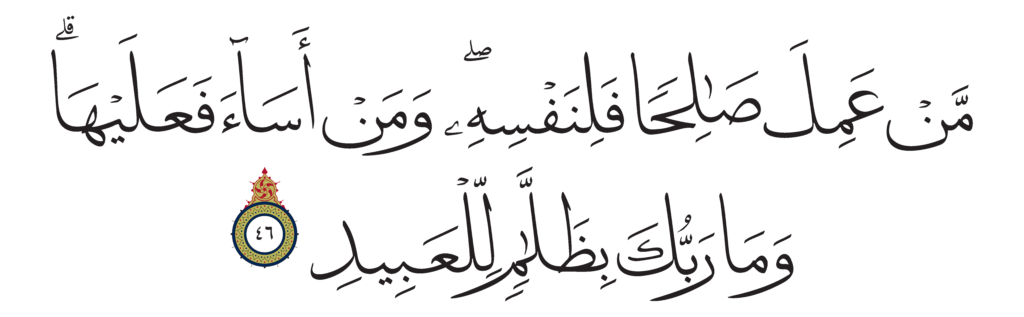 مَّنۡ عَمِلَ صَٰلِحٗا فَلِنَفۡسِهِۦۖ وَمَنۡ أَسَآءَ فَعَلَيۡهَاۗ
وَمَا رَبُّكَ بِظَلَّٰمٖ لِّلۡعَبِيدِ ٤٦